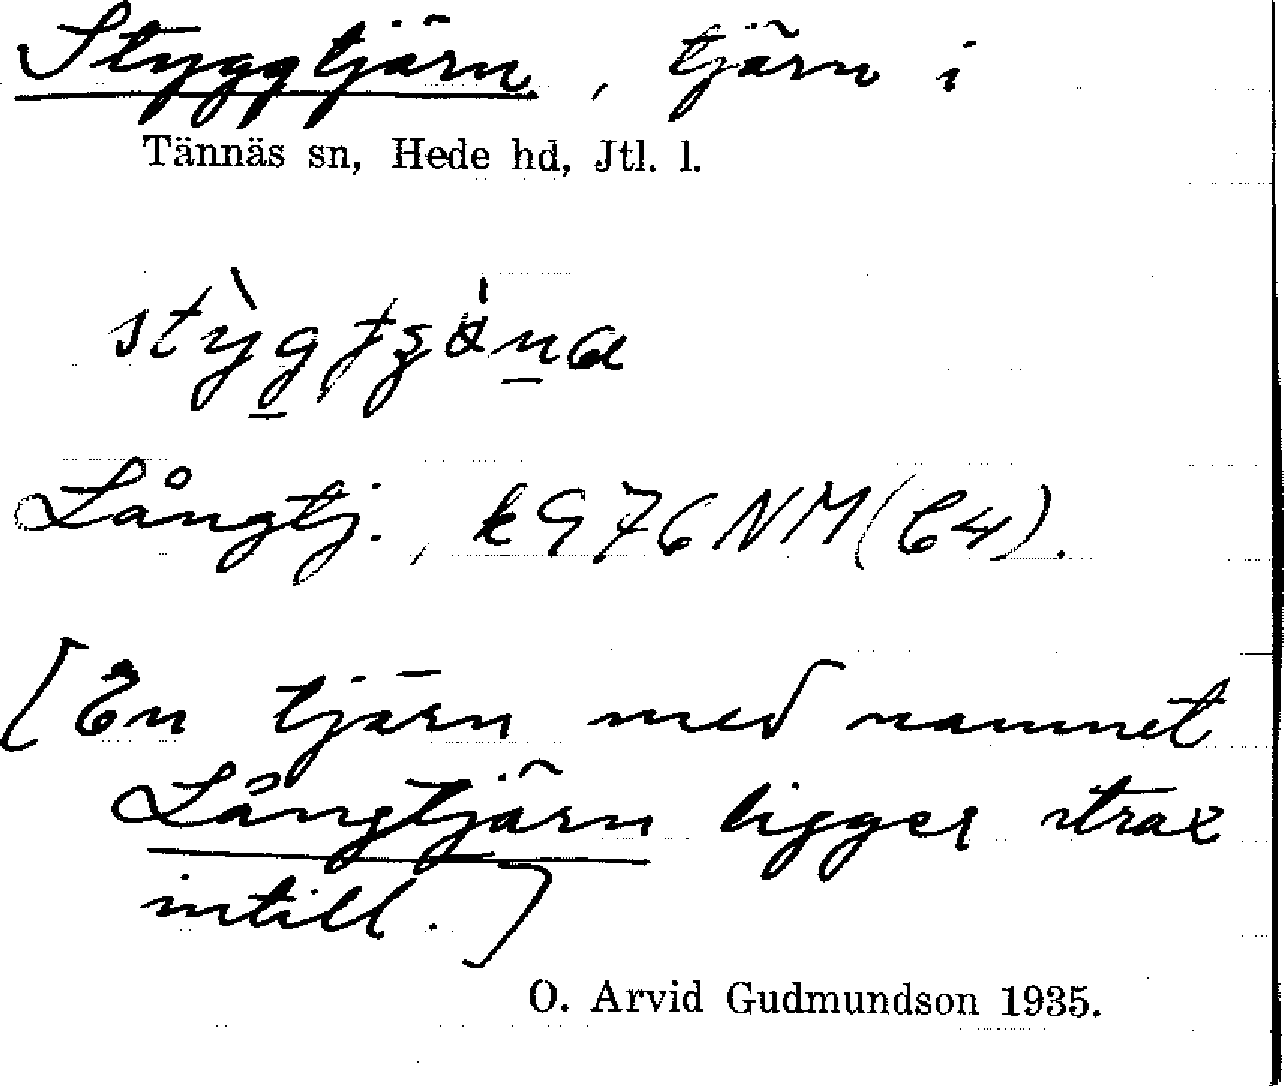 Styggtjärn, tjärn i
Tännäs sn, Hede hd, Jtl. l.
Långtj., k976NM(C4).
[En tjärn med namnet
Långtjärn ligger strax
intill.]
O. Arvid Gudmundson 1935.